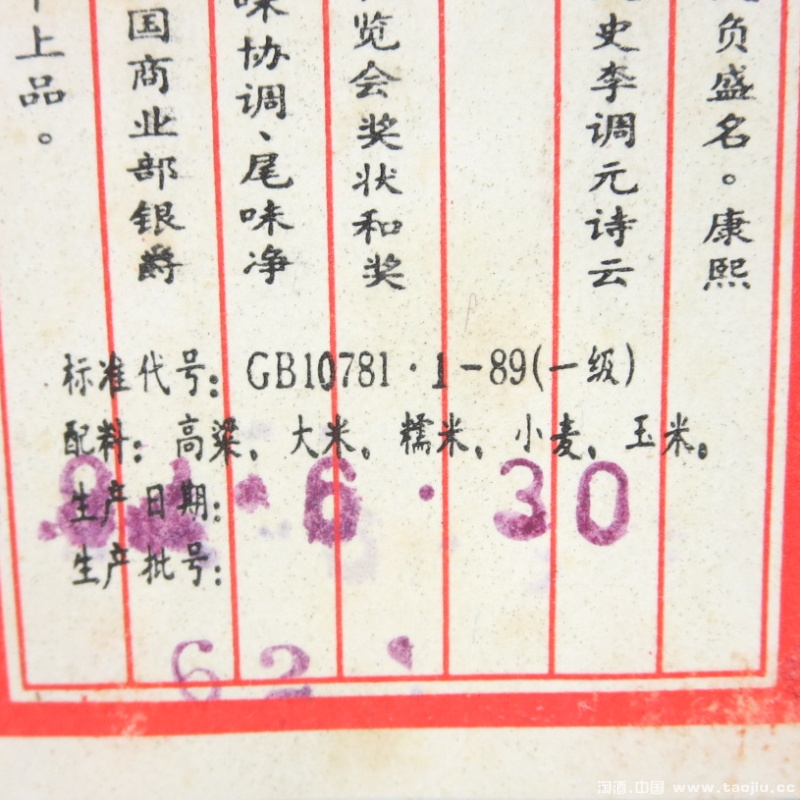 负盛名。康熙
史李调元诗云
览会奖状和奖
味协调、尾味净
国商业部银爵
上品。
标准代号：GB10781·1-89(一级)
配料：高粱、大米、糯米、小麦、玉米。
生产日期：
6·30
生产批号：
62
淘酒.中国 www.taojiu.cc